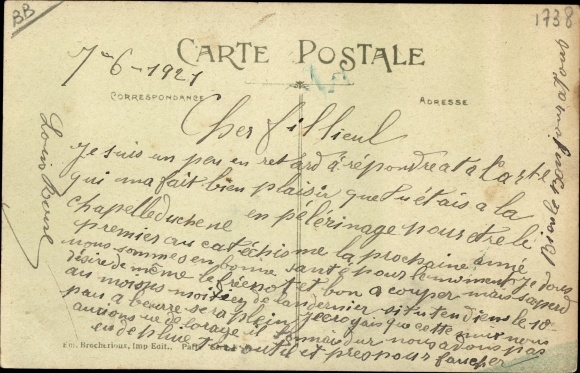 BB
1738
CARTE POSTALE
7-6-1921
CORRESPONDANCE
ADRESSE
Cher fillieul
Je suis un peu en retard à répondre a ta carte
qui ma fait bien plaisir que tu étais a la
chapelleduchene en pélérinage pour etre le
premier au catéchisme la prochaine anné
nous sommes en bonne santé pour le moment je dors
désire de même le est bon a couper mais sa perd
au moins moitié de l'andernier si tu tendiens le 10-
pau a beurre sera plein je croyais que cette nuit nous
aurions eu de lorage et nous avons pas
eu de pluie tout et pres pour faucher
Louis
Em. Brocherioux, Imp-Edit.